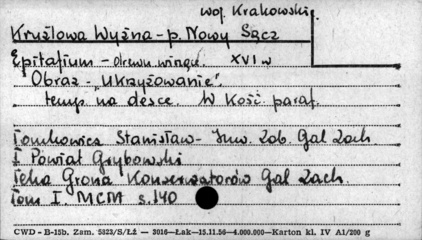 woj. Krakowskie
Krużlowa Wyżna - p. Nowy Sącz
Epitafium - drewn. XVI w
Obraz - "Ukrzyżowanie".
temp. na desce. W Kość. paraf.
Tomkowicz Stanisław - Inw. Zab. Gal Zach.
I Powiat Grybowski
Teka Grona Konserwatorów Gal Zach.
Tom I. MCM s. 140
CWD - B-15b. Zam. 5823/S/ŁŻ — 3016—Łak—15.11.56—4.000.000—Karton kl. IV A1/200 g